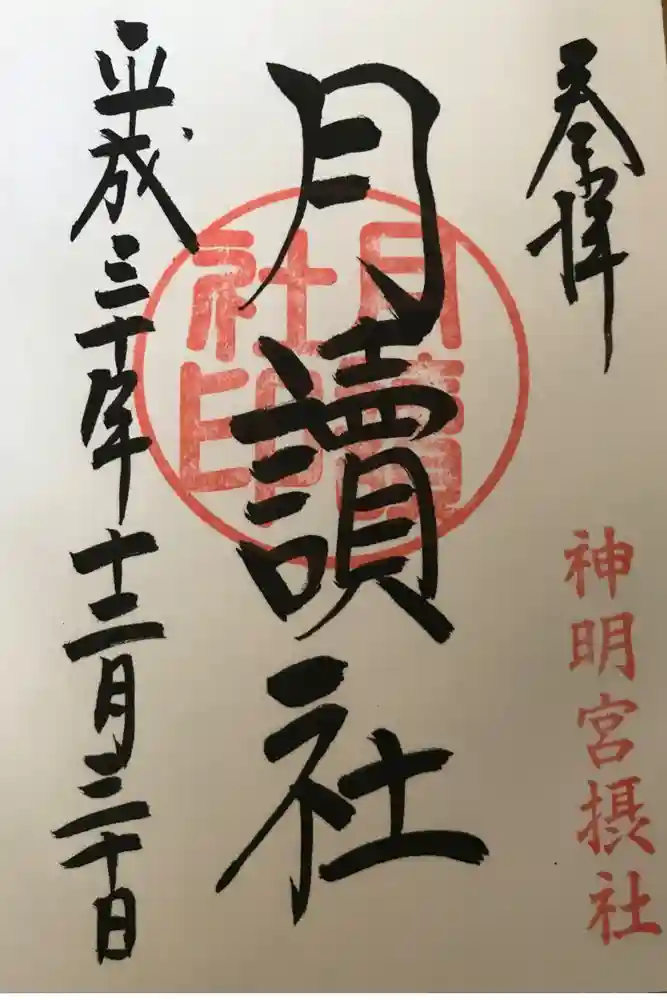 奉拝
神明宮摂社
月讀社
月讀社印
平成三十年十二月三十日